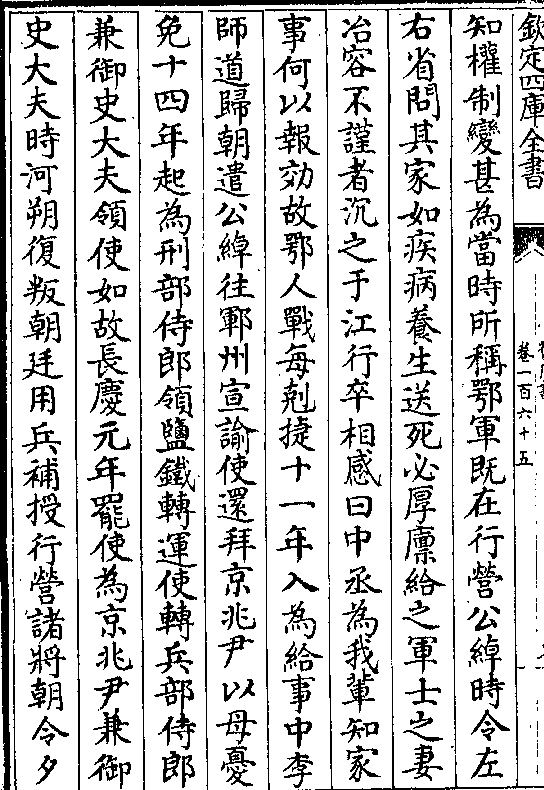 欽定四庫全書
卷一百六十五
知權制變甚為當時所稱鄂軍既在行營公綽時令左
右省問其家如疾病養生送死必厚廪給之軍士之妻
冶容不謹者沉之于江行卒相感曰中丞為我輩知家
事何以報効故鄂人戰每剋捷十一年入為給事中李
師道歸朝遣公綽往鄆州宣諭使還拜京兆尹以母憂
免十四年起為刑部侍郎領鹽鐵轉運使轉兵部侍郎
兼御史大夫領使如故長慶元年罷使為京兆尹兼御
史大夫時河朔復叛朝廷用兵補授行營諸將朝令夕